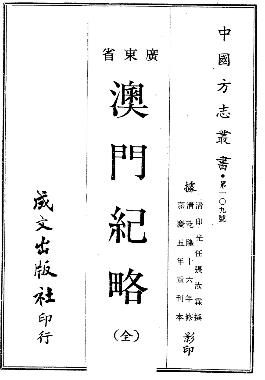 中國方志叢書・第一〇九號
據
清印光任張汝霖撰
清乾隆十六年修
嘉慶五年重刊本
影印
廣東省
澳門紀略
(全)
成文出版社印行